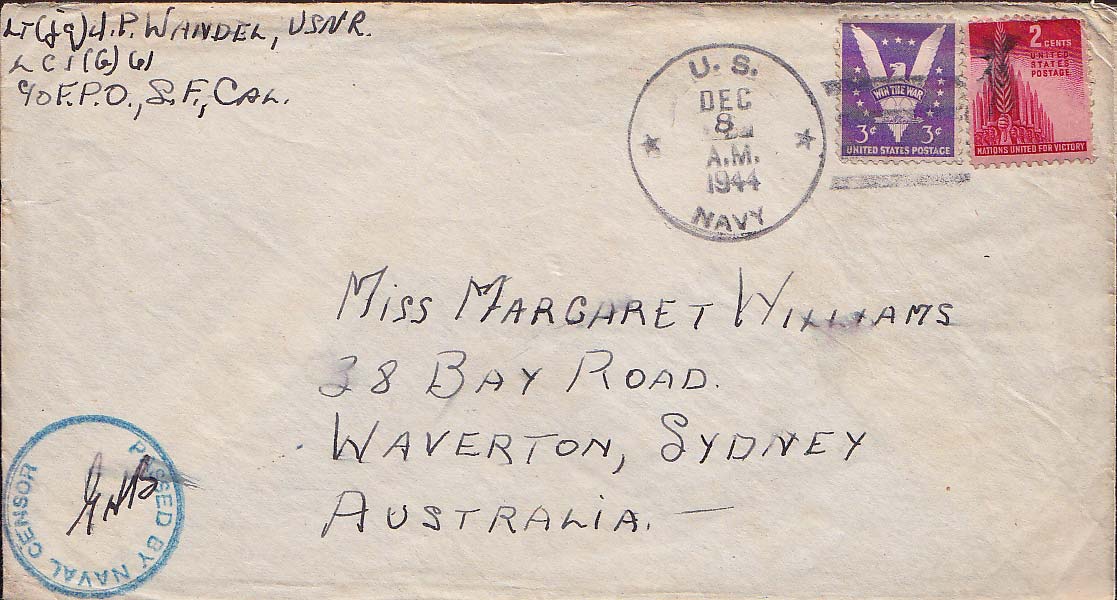 LT(jg) J. P. WANDEL, USNR.
LCI(G) 61
c/o F.P.O., S.F., CAL.
U. S.
DEC
8
A.M.
1944
NAVY
WIN THE WAR
3¢ 3¢
UNITED STATES POSTAGE
2 CENTS
UNITED
STATES
POSTAGE
NATIONS UNITED FOR VICTORY
MISS MARGARET WILLIAMS
38 BAY ROAD.
WAVERTON, SYDNEY
AUSTRALIA. —
PASSED BY NAVAL CENSOR